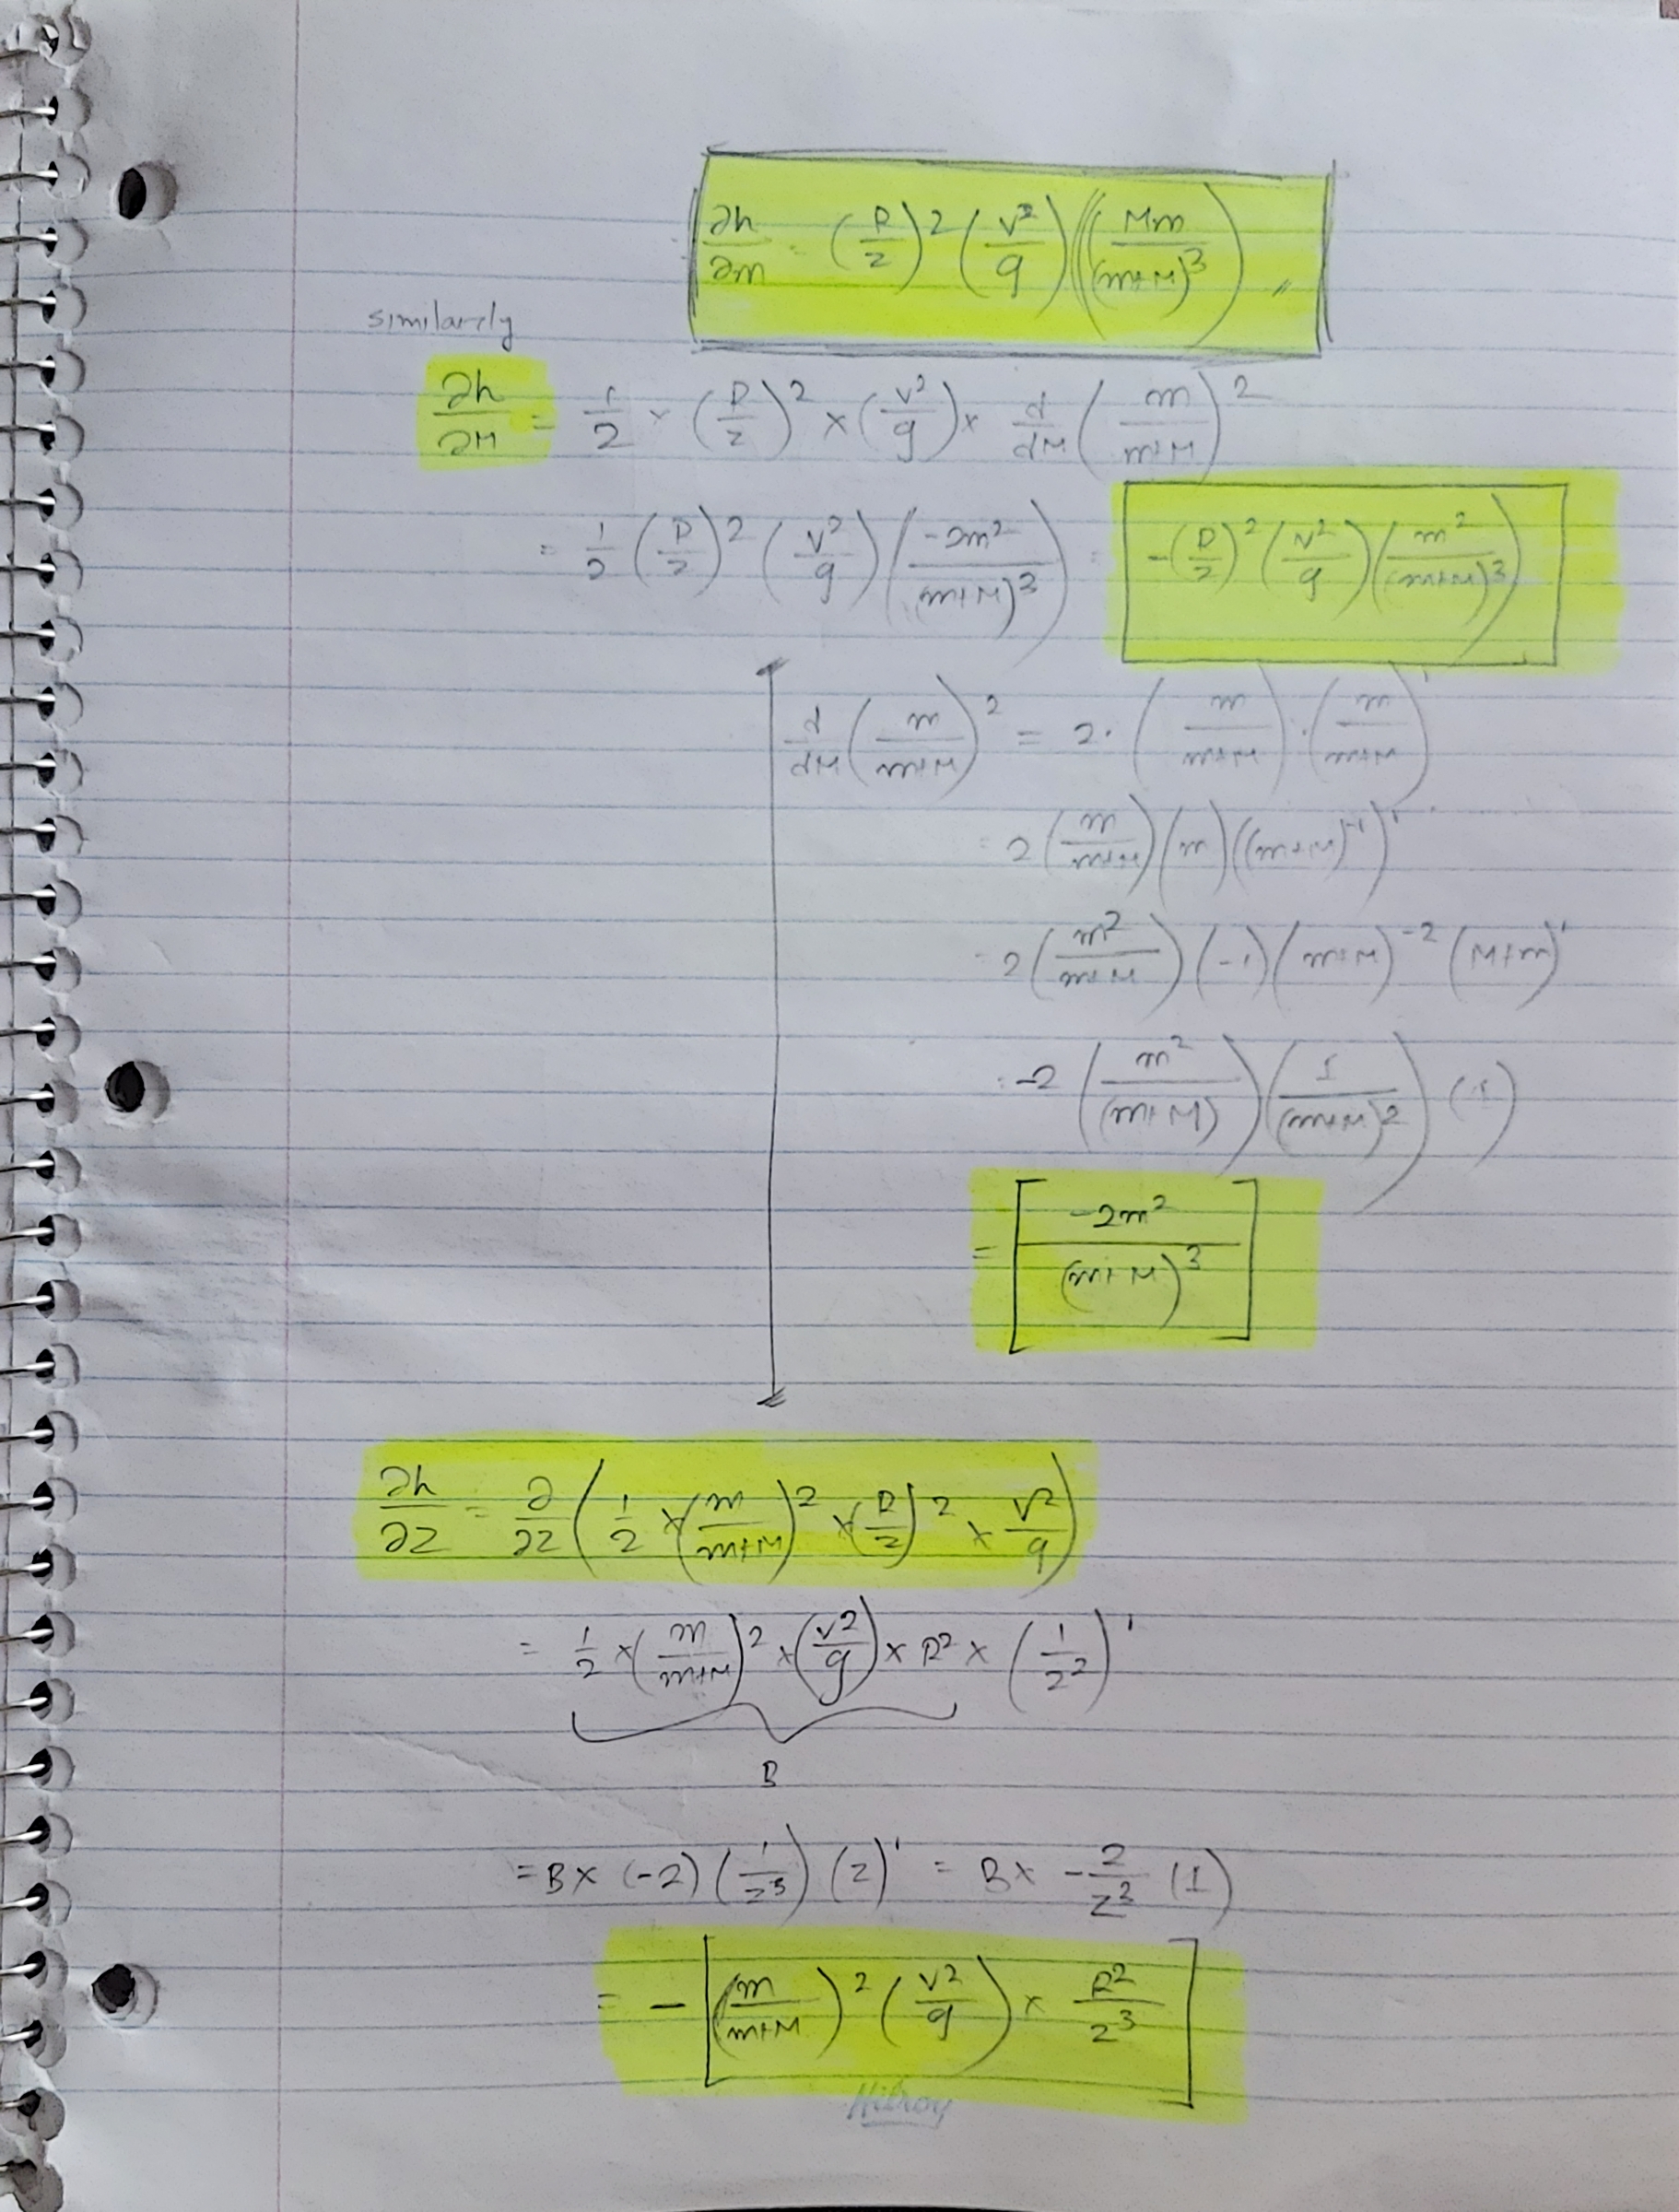 ∂h/∂m = (R/z)² (v²/g) (Mm/(m+M)³) //
similarly
∂h/∂M = 1/2 × (R/z)² × (v²/g) × d/dM (m/(m+M))²
= 1/2 (R/z)² (v²/g) (-2m²/(m+M)³) = -(R/z)² (v²/g) (m²/(m+M)³)
d/dM (m/(m+M))² = 2·(m/(m+M))·(m/(m+M))'
= 2 (m/(m+M)) (m) ((m+M)⁻¹)'
= 2 (m²/(m+M)) (-1) (m+M)⁻² (M+m)'
= -2 (m²/(m+M)) (1/(m+M)²) (1)
= [-2m²/(m+M)³]
∂h/∂z = ∂/∂z (1/2 × (m/(m+M))² × (R/z)² × v²/g)
= 1/2 × (m/(m+M))² × (v²/g) × R² × (1/z²)'
B
= B × (-2) (1/z³) (z)' = B × -2/z³ (1)
= - [(m/(m+M))² (v²/g) × R²/z³]
Hilroy